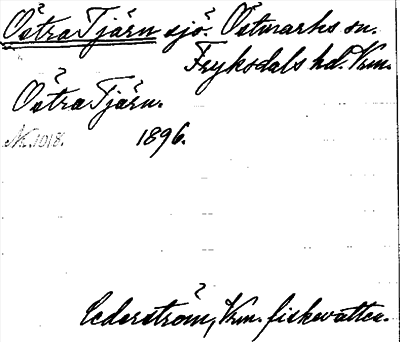 Östra Tjärn sjö. Östmarks sn.
Fryksdals hd. Vrm.
Östra Tjärn.
1896.
Cederström, Vrm. fiskevatten.